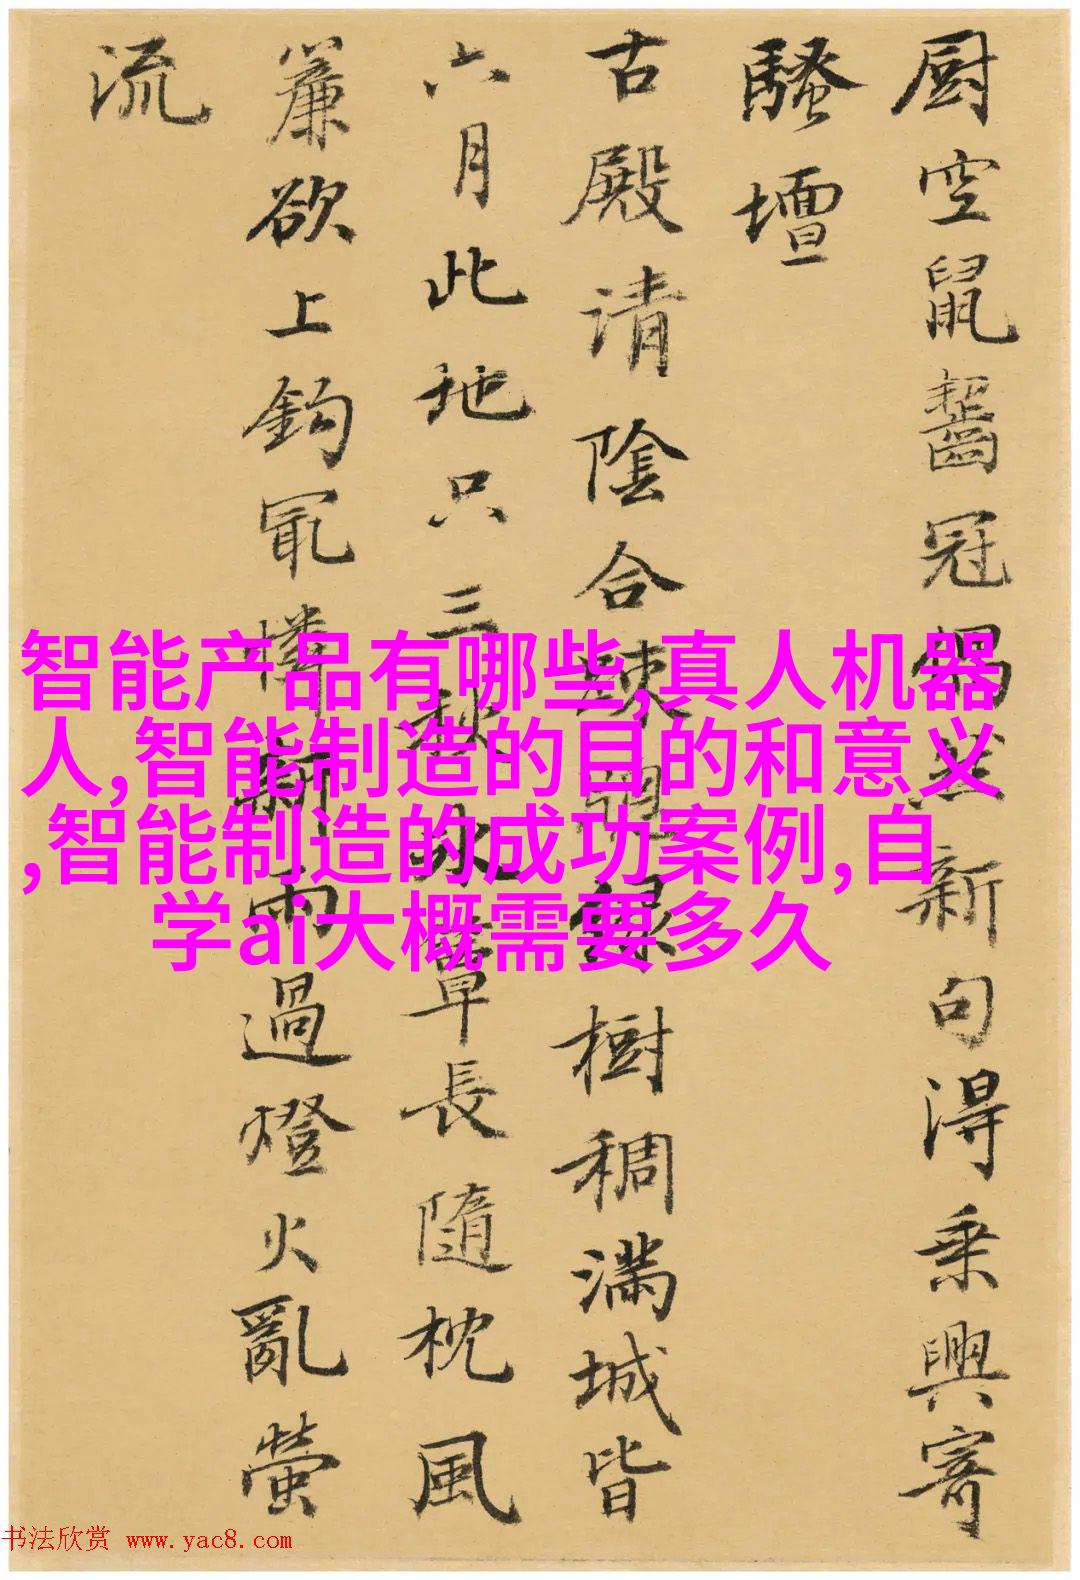 厨空鼠齧冠偶然新句得乘興寄
騷壇
古殿请陰合疎翠緑樹稠满城皆
六月此地只三秋冰簟長隨枕風
簾欲上鈎冣憐新雨過燈火亂螢
流
智能产品有哪些,真人机器
人,智能制造的目的和意义
,智能制造的成功案例,自
学ai大概需要多久
书法欣赏 www.yac8.com